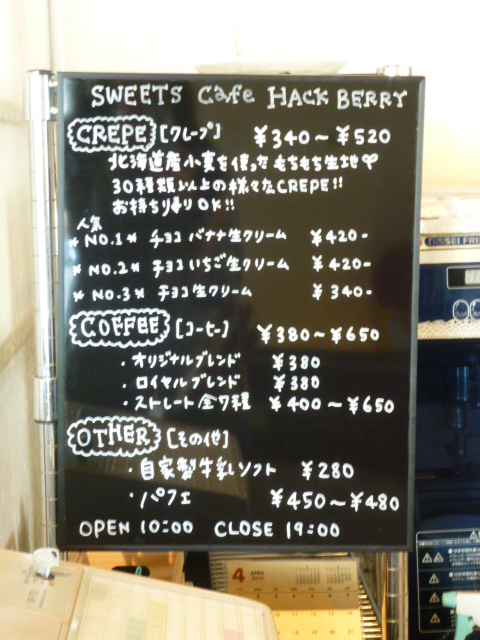 SWEETS Cafe HACK BERRY
CREPE [クレープ] ¥340～¥520
北海道産小麦を使ったもちもち生地♡
30種類以上の様々なCREPE!!
お持ち帰りOK!!
人気
*NO.1* チョコバナナ生クリーム ¥420-
*NO.2* チョコいちご生クリーム ¥420-
*NO.3* チョコ生クリーム ¥340-
COFFEE [コーヒー] ¥380～¥650
・オリジナルブレンド ¥380
・ロイヤルブレンド ¥380
・ストレート全7種 ¥400～¥650
OTHER [その他]
・自家製牛乳ソフト ¥280
・パフェ ¥450～¥480
OPEN 10:00 CLOSE 19:00
4 APRIL